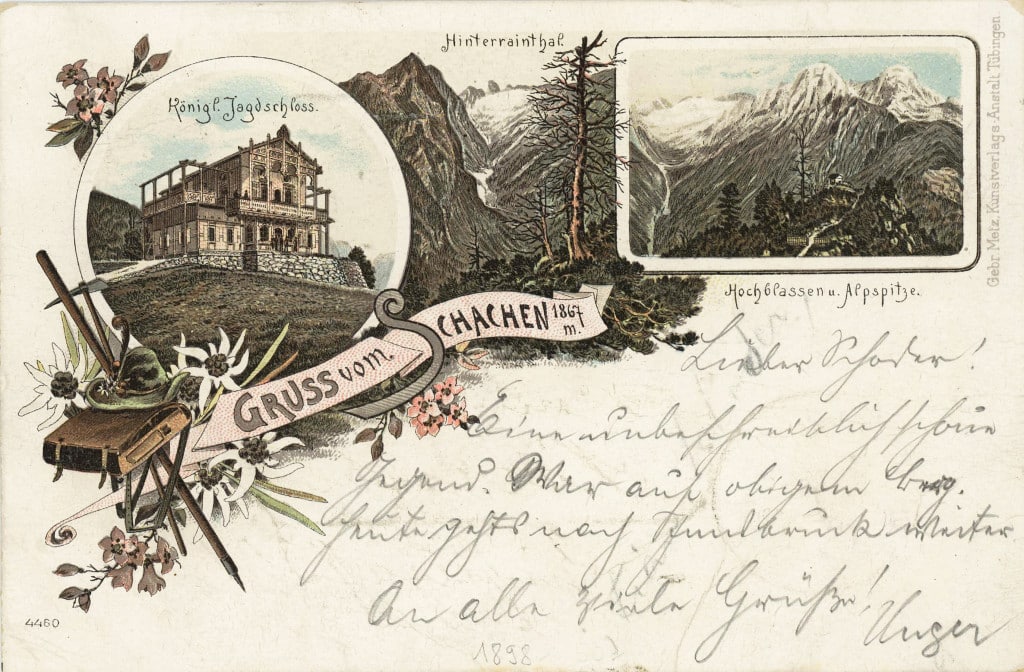 Hinterrainthal.
Königl. Jagdschloss.
Hochblassen u. Alpspitze.
Gebr. Metz, Kunstverlags-Anstalt, Tübingen
GRUSS vom. SCHACHEN 1867 m.
Lieber Schoder!
Eine unbeschreiblich schöne
Gegend. War auf obigem Berg.
Heute gehts nach Innsbruck weiter
An alle viele Grüße!
Unger
4460
1898